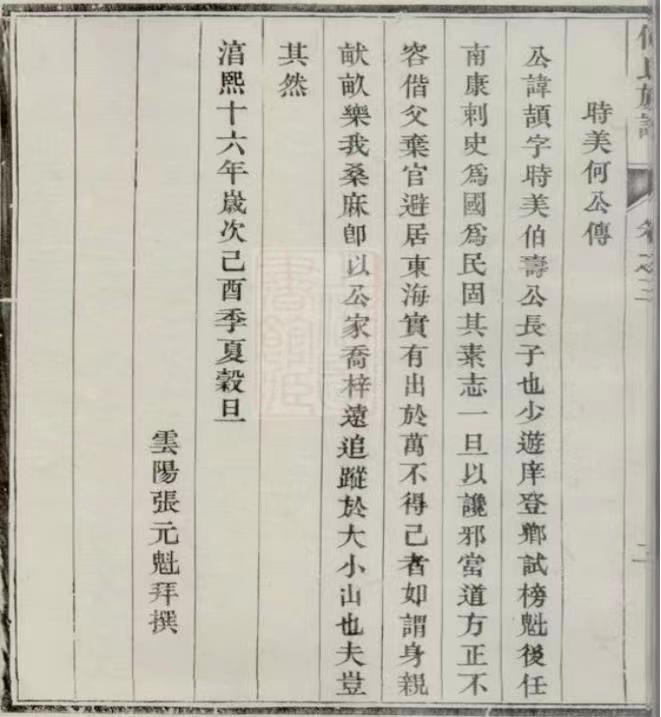 何氏族譜
卷之三
二
時美何公傳
公諱頡字時美伯壽公長子也少遊庠登鄉試榜魁後任
南康刺史為國為民固其素志一旦以讒邪當道方正不
容偕父棄官避居東海實有出於萬不得已者如謂身親
畎畝樂我桑麻卽以公家喬梓遠追蹤於大小山也夫豈
其然
淳熙十六年歲次己酉季夏穀旦
雲陽張元魁拜撰